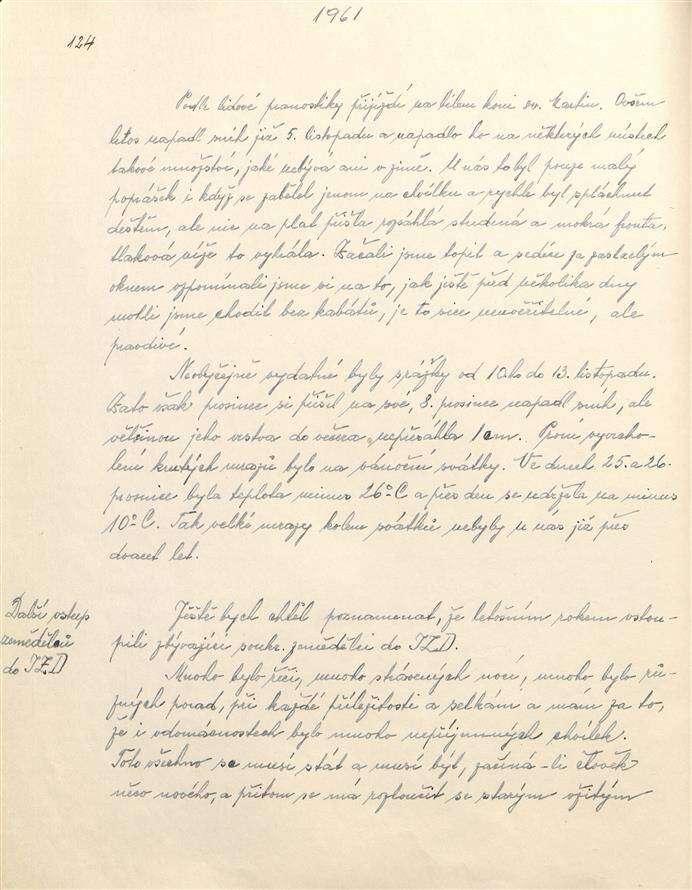 1961
124
Podle lidové pranostiky přijíždí na bílém koni sv. Martin. Ovšem
letos napadl sníh již 5. listopadu a napadlo ho na některých místech
takové množství, jaké nebývá ani v zimě. U nás to byl pouze malý
poprášek i když se zatetel jenom na chvilku a rychle byl spláchnut
deštěm, ale nic na plat přišla rozsáhlá studená a mokrá fronta,
tlaková níže to vyhrála. Začali jsme topit a sedíce za zaskleným
oknem vzpomínali jsme si na to, jak ještě před několika dny
mohli jsme chodit bez kabátů, je to sice neuvěřitelné, ale
pravdivé.
Neobyčejně vydatné byly srážky od 10. ho do 13. listopadu.
Zato však prosinec si přišel na své, 8. prosince napadl sníh, ale
většinou jeho vrstva do večera nepřesáhla 1 cm. První vyvrcho-
lení krutých mrazů bylo na vánoční svátky. Ve dnech 25. a 26.
prosince byla teplota minus 26° C a přes den se udržela na minus
10° C. Tak velké mrazy kolem svátků nebyly u nás již přes
dvacet let.
Další vstup
zemědělců
do JZD
Ještě bych chtěl poznamenat, že letošním rokem vstou-
pili zbývající soukr. zemědělci do JZD.
Mnoho bylo řečí, mnoho strávených nocí, mnoho bylo rů-
zných porad, při každé příležitosti a selkám a mám za to,
že i v domácnostech bylo mnoho nepříjemných chvilek.
Toto všechno se musí stát a musí být, začíná-li člověk
něco nového, a přitom se má rozloučit se starým vžitým